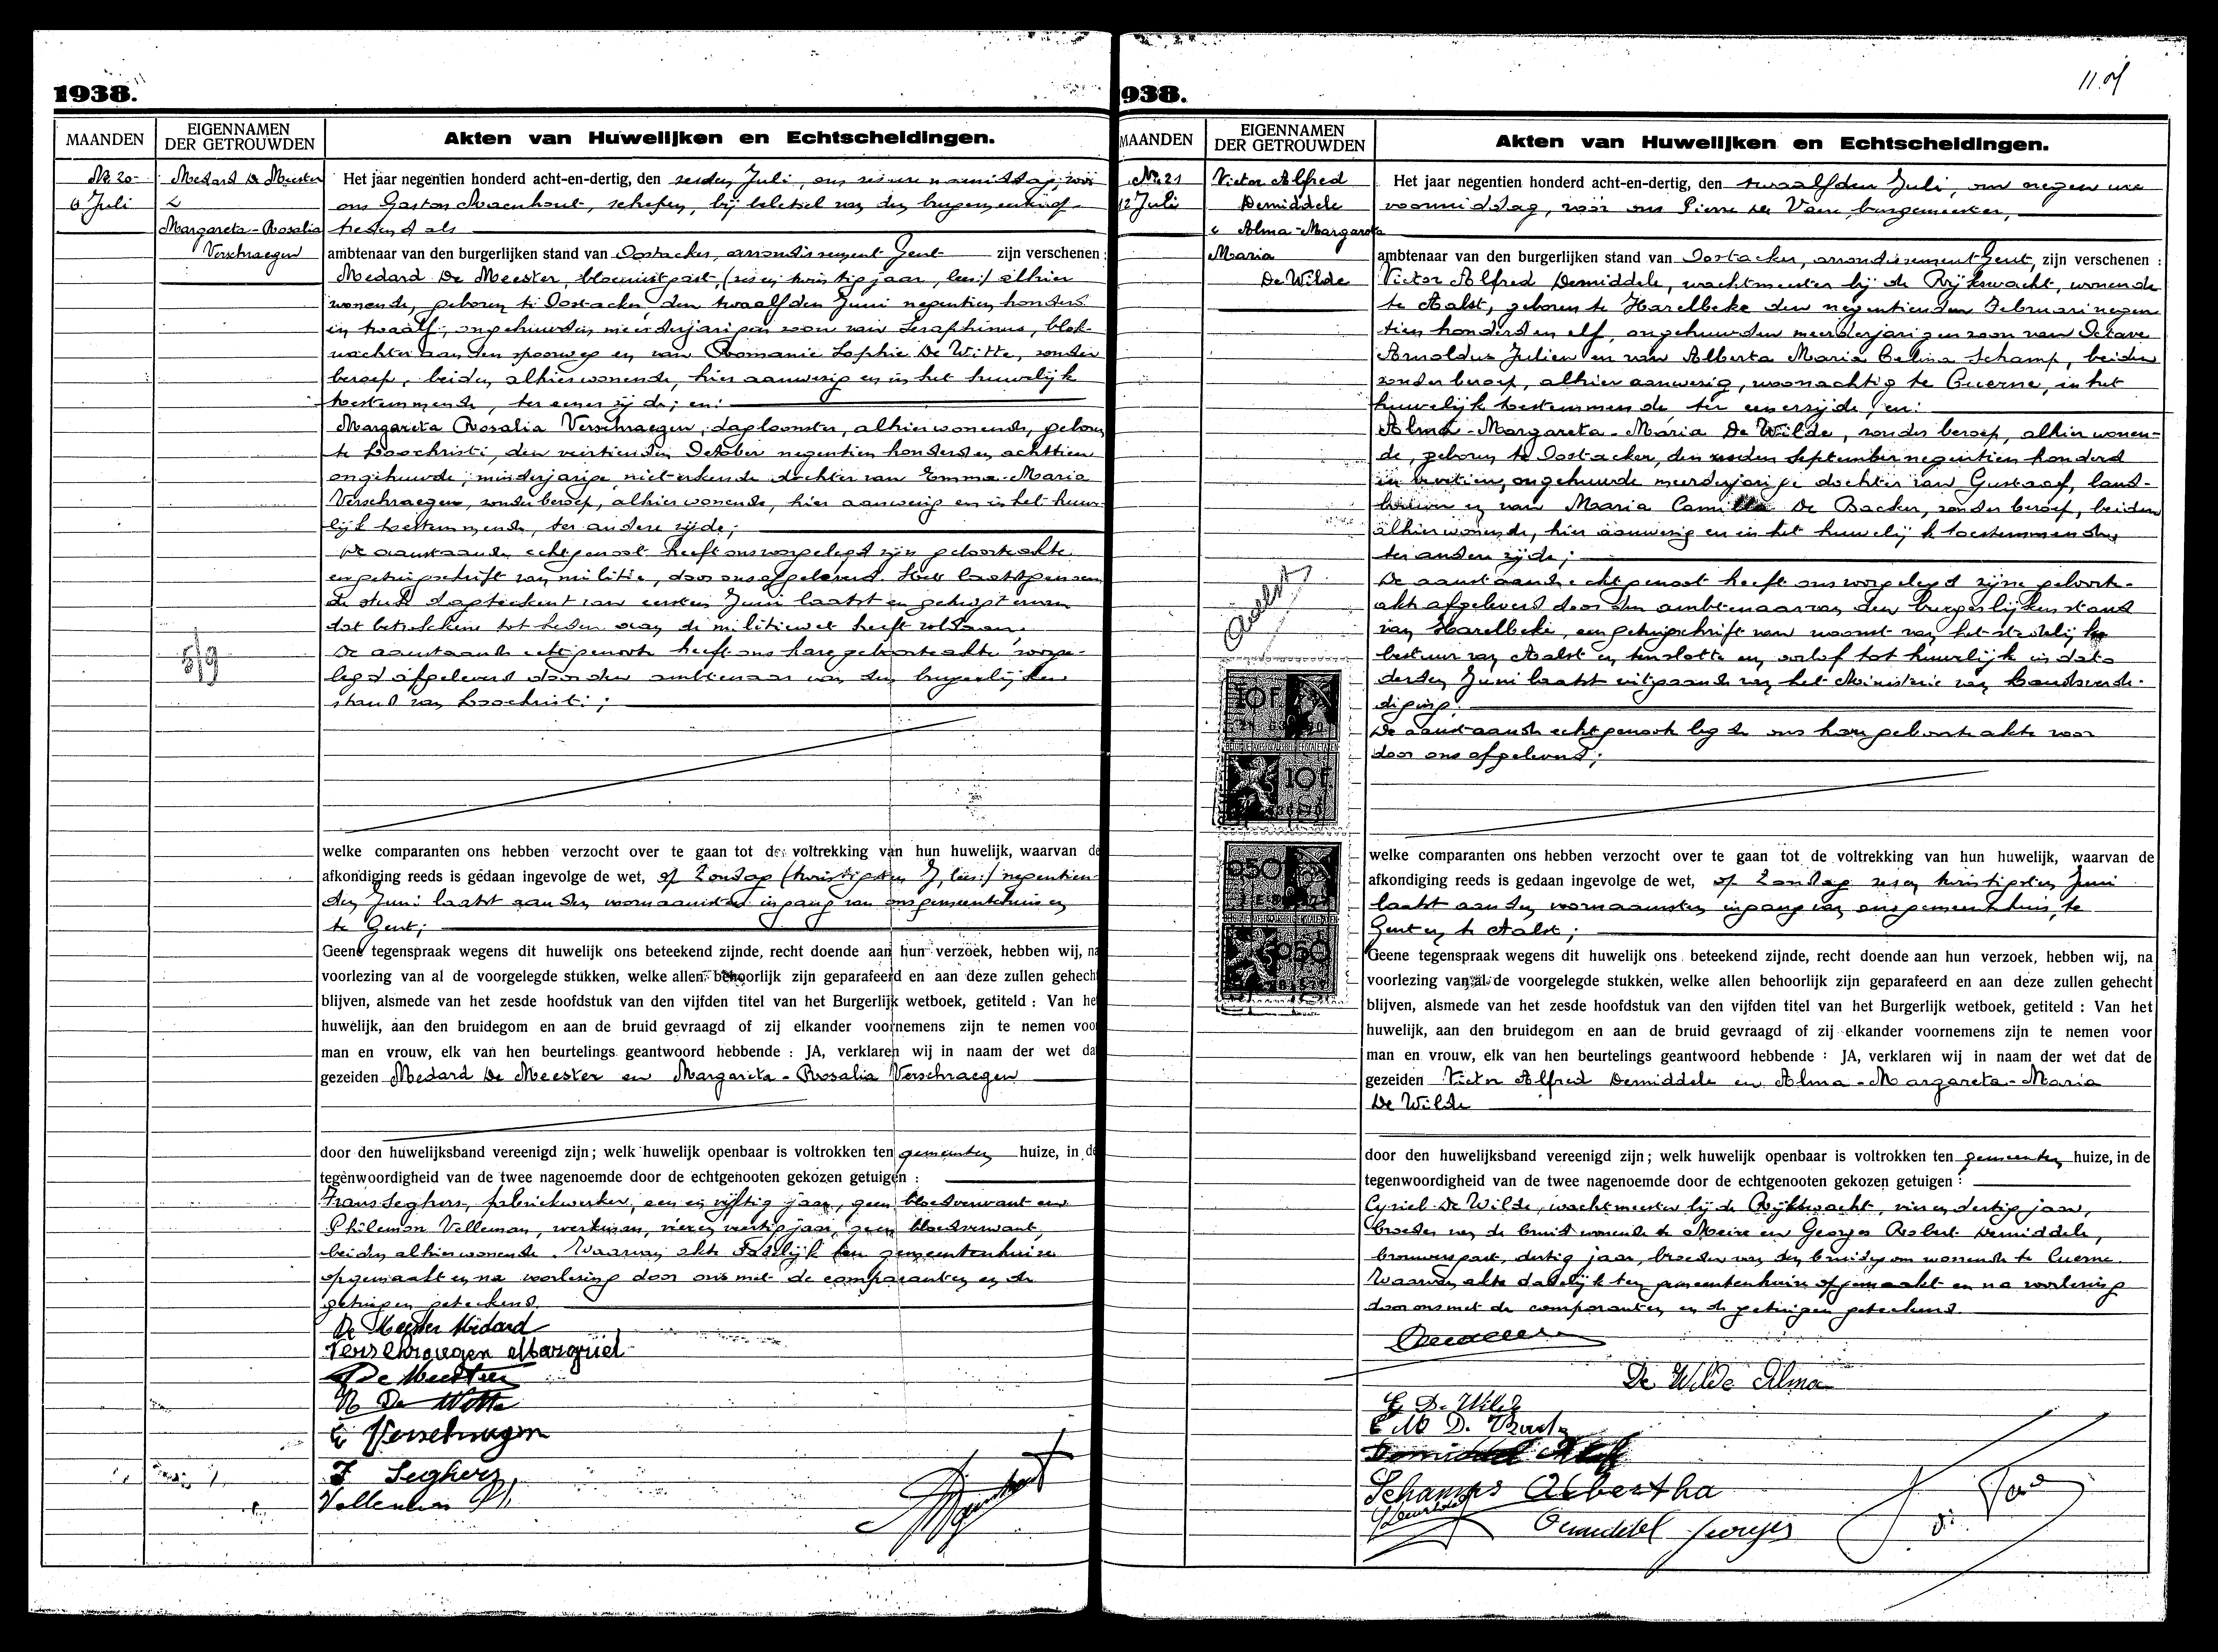 1938.
MAANDEN
EIGENNAMEN
DER GETROUWDEN
Akten van Huwelijken en Echtscheidingen.
Nr 20
6 Juli
Medard De Meester
&
Margareta-Rosalia
Verschraegen
5/9
Het jaar negentien honderd acht-en-dertig, den zesden Juli, ons voormiddag, voor
ons Gaston Maenhout, schepen, bij belet van den burgemeester
tredend als
ambtenaar van den burgerlijken stand van Oostacker, arrondissement Gent zijn verschenen :
Medard De Meester, bloemistgast, (zes en twintig jaar, lees:) alhier
wonende, geboren te Oostacker, den twaalfden Juni negentien honderd
en twaalf, ongehuwden meerderjarigen zoon van Seraphinus, blok-
wachter aan den spoorweg en van Romanie Sophie De Witte, zonder
beroep, beiden alhier wonende, hier aanwezig en in het huwelijk
toestemmende, ter eener zijde; en:
Margareta Rosalia Verschraegen, dagloonster, alhier wonende, geboren
te Loochristi, den veertienden October negentien honderd en achttien
ongehuwde, minderjarige niet-erkende dochter van Emma-Maria
Verschraegen, zonder beroep, alhier wonende, hier aanwezig en in het huwe
lijk toestemmende, ter andere zijde;
De aanstaande echtgenoot heeft ons voorgelegd zijn geboorteakte
en getuigschrift van militie, door ons afgeleverd. Het laatstgenoem
de stuk dagteekent van eersten Juni laatst en getuigt ervan
dat betrokkene tot heden aan de militiewet heeft voldaan.
De aanstaande echtgenoote heeft ons hare geboorteakte voorge-
legd afgeleverd door den ambtenaar van den burgerlijken
stand van Loochristi;
welke comparanten ons hebben verzocht over te gaan tot de voltrekking van hun huwelijk, waarvan de
afkondiging reeds is gedaan ingevolge de wet, op Zondag (twintigsten J, lees:) negentien-
den Juni laatst aan den voornaamsten ingang van ons gemeentehuis en
te Gent;
Geene tegenspraak wegens dit huwelijk ons beteekend zijnde, recht doende aan hun verzoek, hebben wij, na
voorlezing van al de voorgelegde stukken, welke allen behoorlijk zijn geparafeerd en aan deze zullen gehecht
blijven, alsmede van het zesde hoofdstuk van den vijfden titel van het Burgerlijk wetboek, getiteld : Van he
huwelijk, aan den bruidegom en aan de bruid gevraagd of zij elkander voornemens zijn te nemen voo
man en vrouw, elk van hen beurtelings geantwoord hebbende : JA, verklaren wij in naam der wet da
gezeiden Medard De Meester en Margareta-Rosalia Verschraegen
door den huwelijksband vereenigd zijn; welk huwelijk openbaar is voltrokken ten gemeenten huize, in de
tegenwoordigheid van de twee nagenoemde door de echtgenooten gekozen getuigen :
Frans Seghers, fabriekwerker, een en vijftig jaar, geen bloedverwant en
Philemon Velleman, werkman, vier en veertig jaar, geen bloedverwant,
beiden alhier wonende. Waarvan akte dadelijk ten gemeentenhuize
opgemaakt en na voorlezing door ons met de comparanten en de
getuigen geteekend.
De Meester Médard
Verschraegen Margriet
De Meester
R De Witte
E Verschraegen
F Seghers
Velleman Ph,
938.
11.
MAANDEN
EIGENNAMEN
DER GETROUWDEN
Akten van Huwelijken en Echtscheidingen.
Nr. 21
12 Juli
Victor Alfred
Demiddele
& Alma-Margareta
Maria
De Wilde
Aalst
10F
10F
050
050
Het jaar negentien honderd acht-en-dertig, den twaalfden Juli, om negen ure
voormiddag, voor ons Pierre De Vane burgemeester,
ambtenaar van den burgerlijken stand van Oostacker, arrondissement Gent, zijn verschenen :
Victor Alfred Demiddele, wachtmeester bij de Rijkswacht, wonende
te Aalst, geboren te Harelbeke den negentienden Februari negen
tien honderd en elf, ongehuwden meerderjarigen zoon van Octave
Arnoldus Julien en van Alberta Maria Celina Schamp, beiden
zonder beroep, alhier aanwezig, woonachtig te Cuerne, in het
huwelijk toestemmende ter eenerzijde, en:
Alma-Margareta-Maria De Wilde, zonder beroep, alhier wonen-
de, geboren te Oostacker, den zesden September negentien honderd
en veertien, ongehuwde meerderjarige dochter van Gustaaf, land-
bouwer en van Maria Camilla De Backer, zonder beroep, beiden
alhier wonende, hier aanwezig en in het huwelijk toestemmende,
ter andere zijde;
De aanstaande echtgenoot heeft ons voorgelegd zijne geboorte-
akte afgeleverd door den ambtenaar van den burgerlijken stand
van Harelbeke, een getuigschrift van woonst van het stedelijk
bestuur van Aalst en tenslotte een verlof tot huwelijk in dato
derden Juni laatst uitgaande van het Ministerie van Landsverde-
diging.
De aanstaande echtgenoote legde ons hare geboorteakte voor
door ons afgeleverd;
welke comparanten ons hebben verzocht over te gaan tot de voltrekking van hun huwelijk, waarvan de
afkondiging reeds is gedaan ingevolge de wet, op Zondag zes en twintigsten Juni
laatst aan den voornaamsten ingang van ons gemeentehuis, te
Gent en te Aalst;
Geene tegenspraak wegens dit huwelijk ons beteekend zijnde, recht doende aan hun verzoek, hebben wij, na
voorlezing van al de voorgelegde stukken, welke allen behoorlijk zijn geparafeerd en aan deze zullen gehecht
blijven, alsmede van het zesde hoofdstuk van den vijfden titel van het Burgerlijk wetboek, getiteld : Van het
huwelijk, aan den bruidegom en aan de bruid gevraagd of zij elkander voornemens zijn te nemen voor
man en vrouw, elk van hen beurtelings geantwoord hebbende : JA, verklaren wij in naam der wet dat de
gezeiden Victor Alfred Demiddele en Alma-Margareta-Maria
De Wilde
door den huwelijksband vereenigd zijn; welk huwelijk openbaar is voltrokken ten gemeenten huize, in de
tegenwoordigheid van de twee nagenoemde door de echtgenooten gekozen getuigen :
Cyriel De Wilde, wachtmeester bij de Rijkswacht, vier en dertig jaar,
broeder van de bruid wonende te Meire en Georges Robert Demiddele,
brouwersgast, dertig jaar, broeder van den bruidegom wonende te Cuerne.
Waarvan akte dadelijk ten gemeentenhuize opgemaakt en na voorlezing
door ons met de comparanten en de getuigen geteekend.
De Wilde Alma
G De Wilde
Schamps Albertha
Demiddel Georges